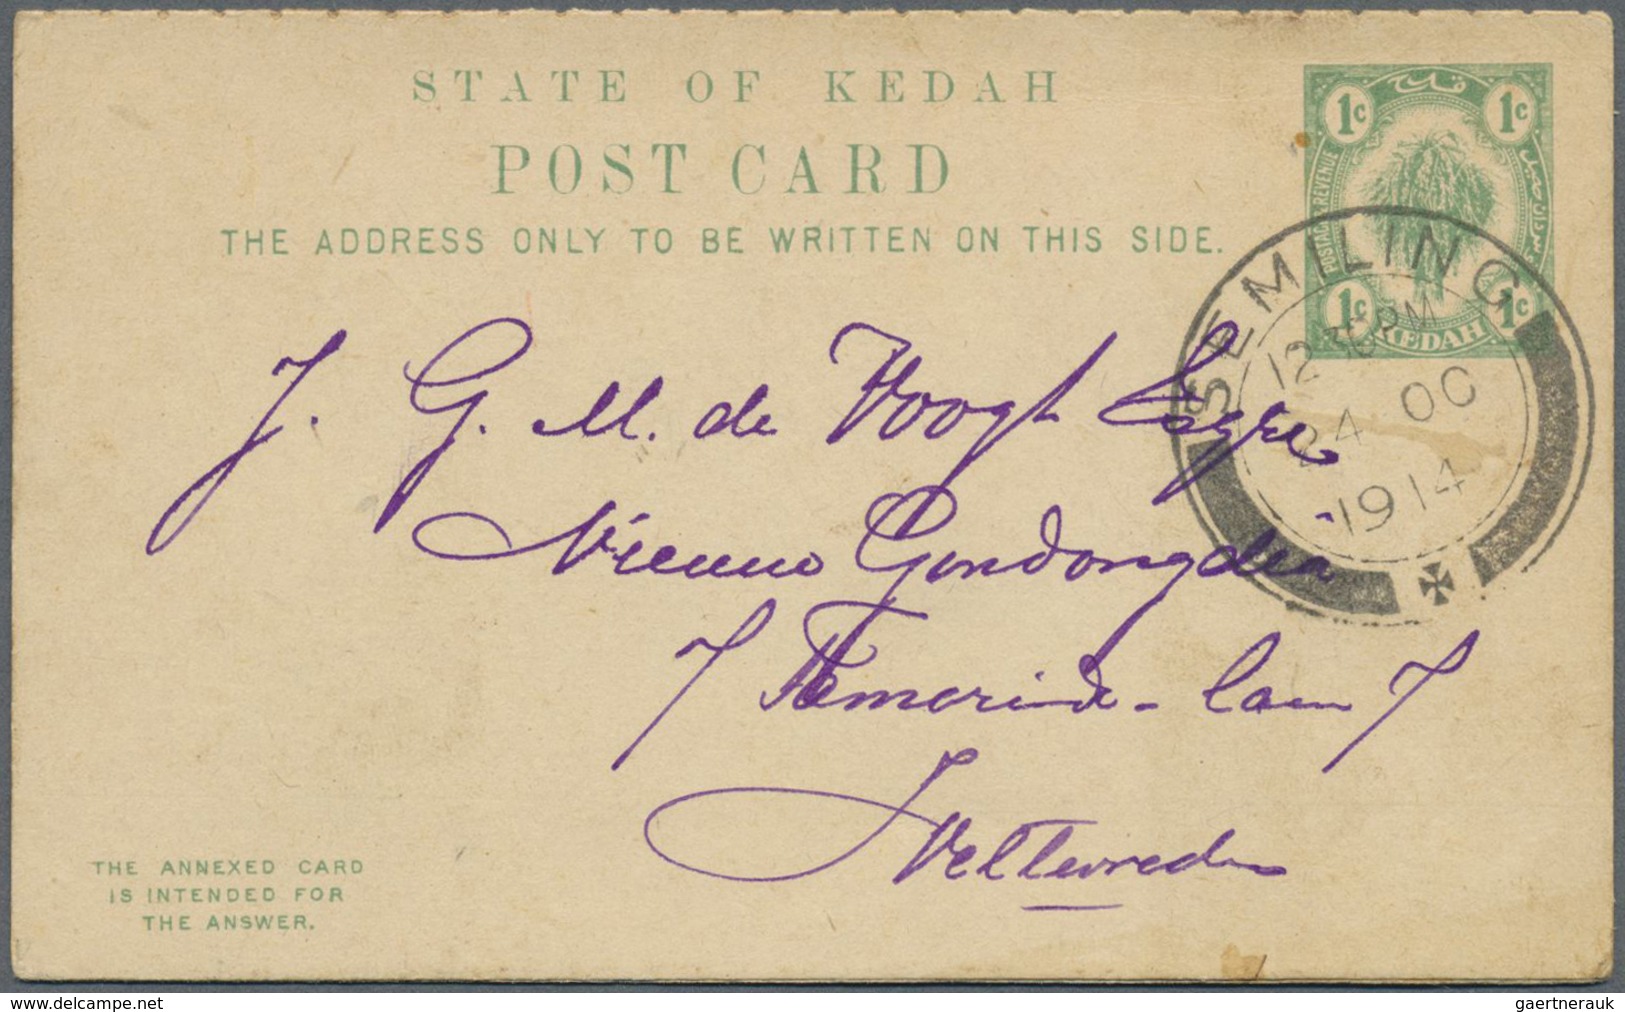 STATE OF KEDAH
POST CARD
THE ADDRESS ONLY TO BE WRITTEN ON THIS SIDE.
1c 1c
POSTAGE & REVENUE
1c 1c
KEDAH
SEMILING
12 30 PM
24 OC
1914
J. G. M. de Voogt Esqre
Nieuwe Gondongdea
7 Tamarinde-laan 7
Weltevreden
THE ANNEXED CARD
IS INTENDED FOR
THE ANSWER.
delcampe.net
gaertnerauk